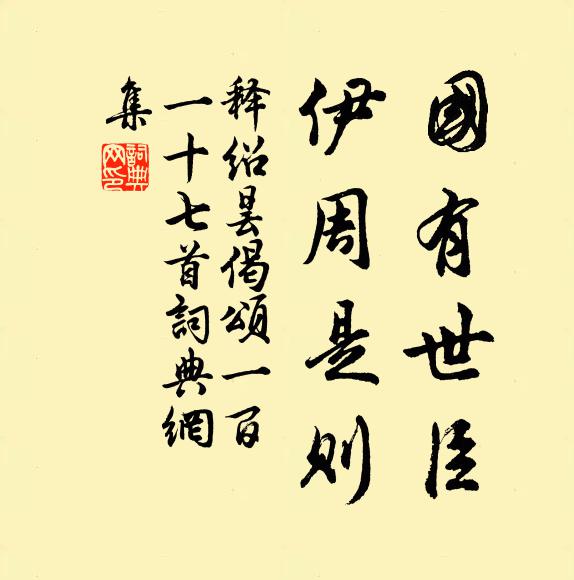 國有世臣
伊周是則
释绍昙偈颂一百
一十七首詞典網
集
詞典網印